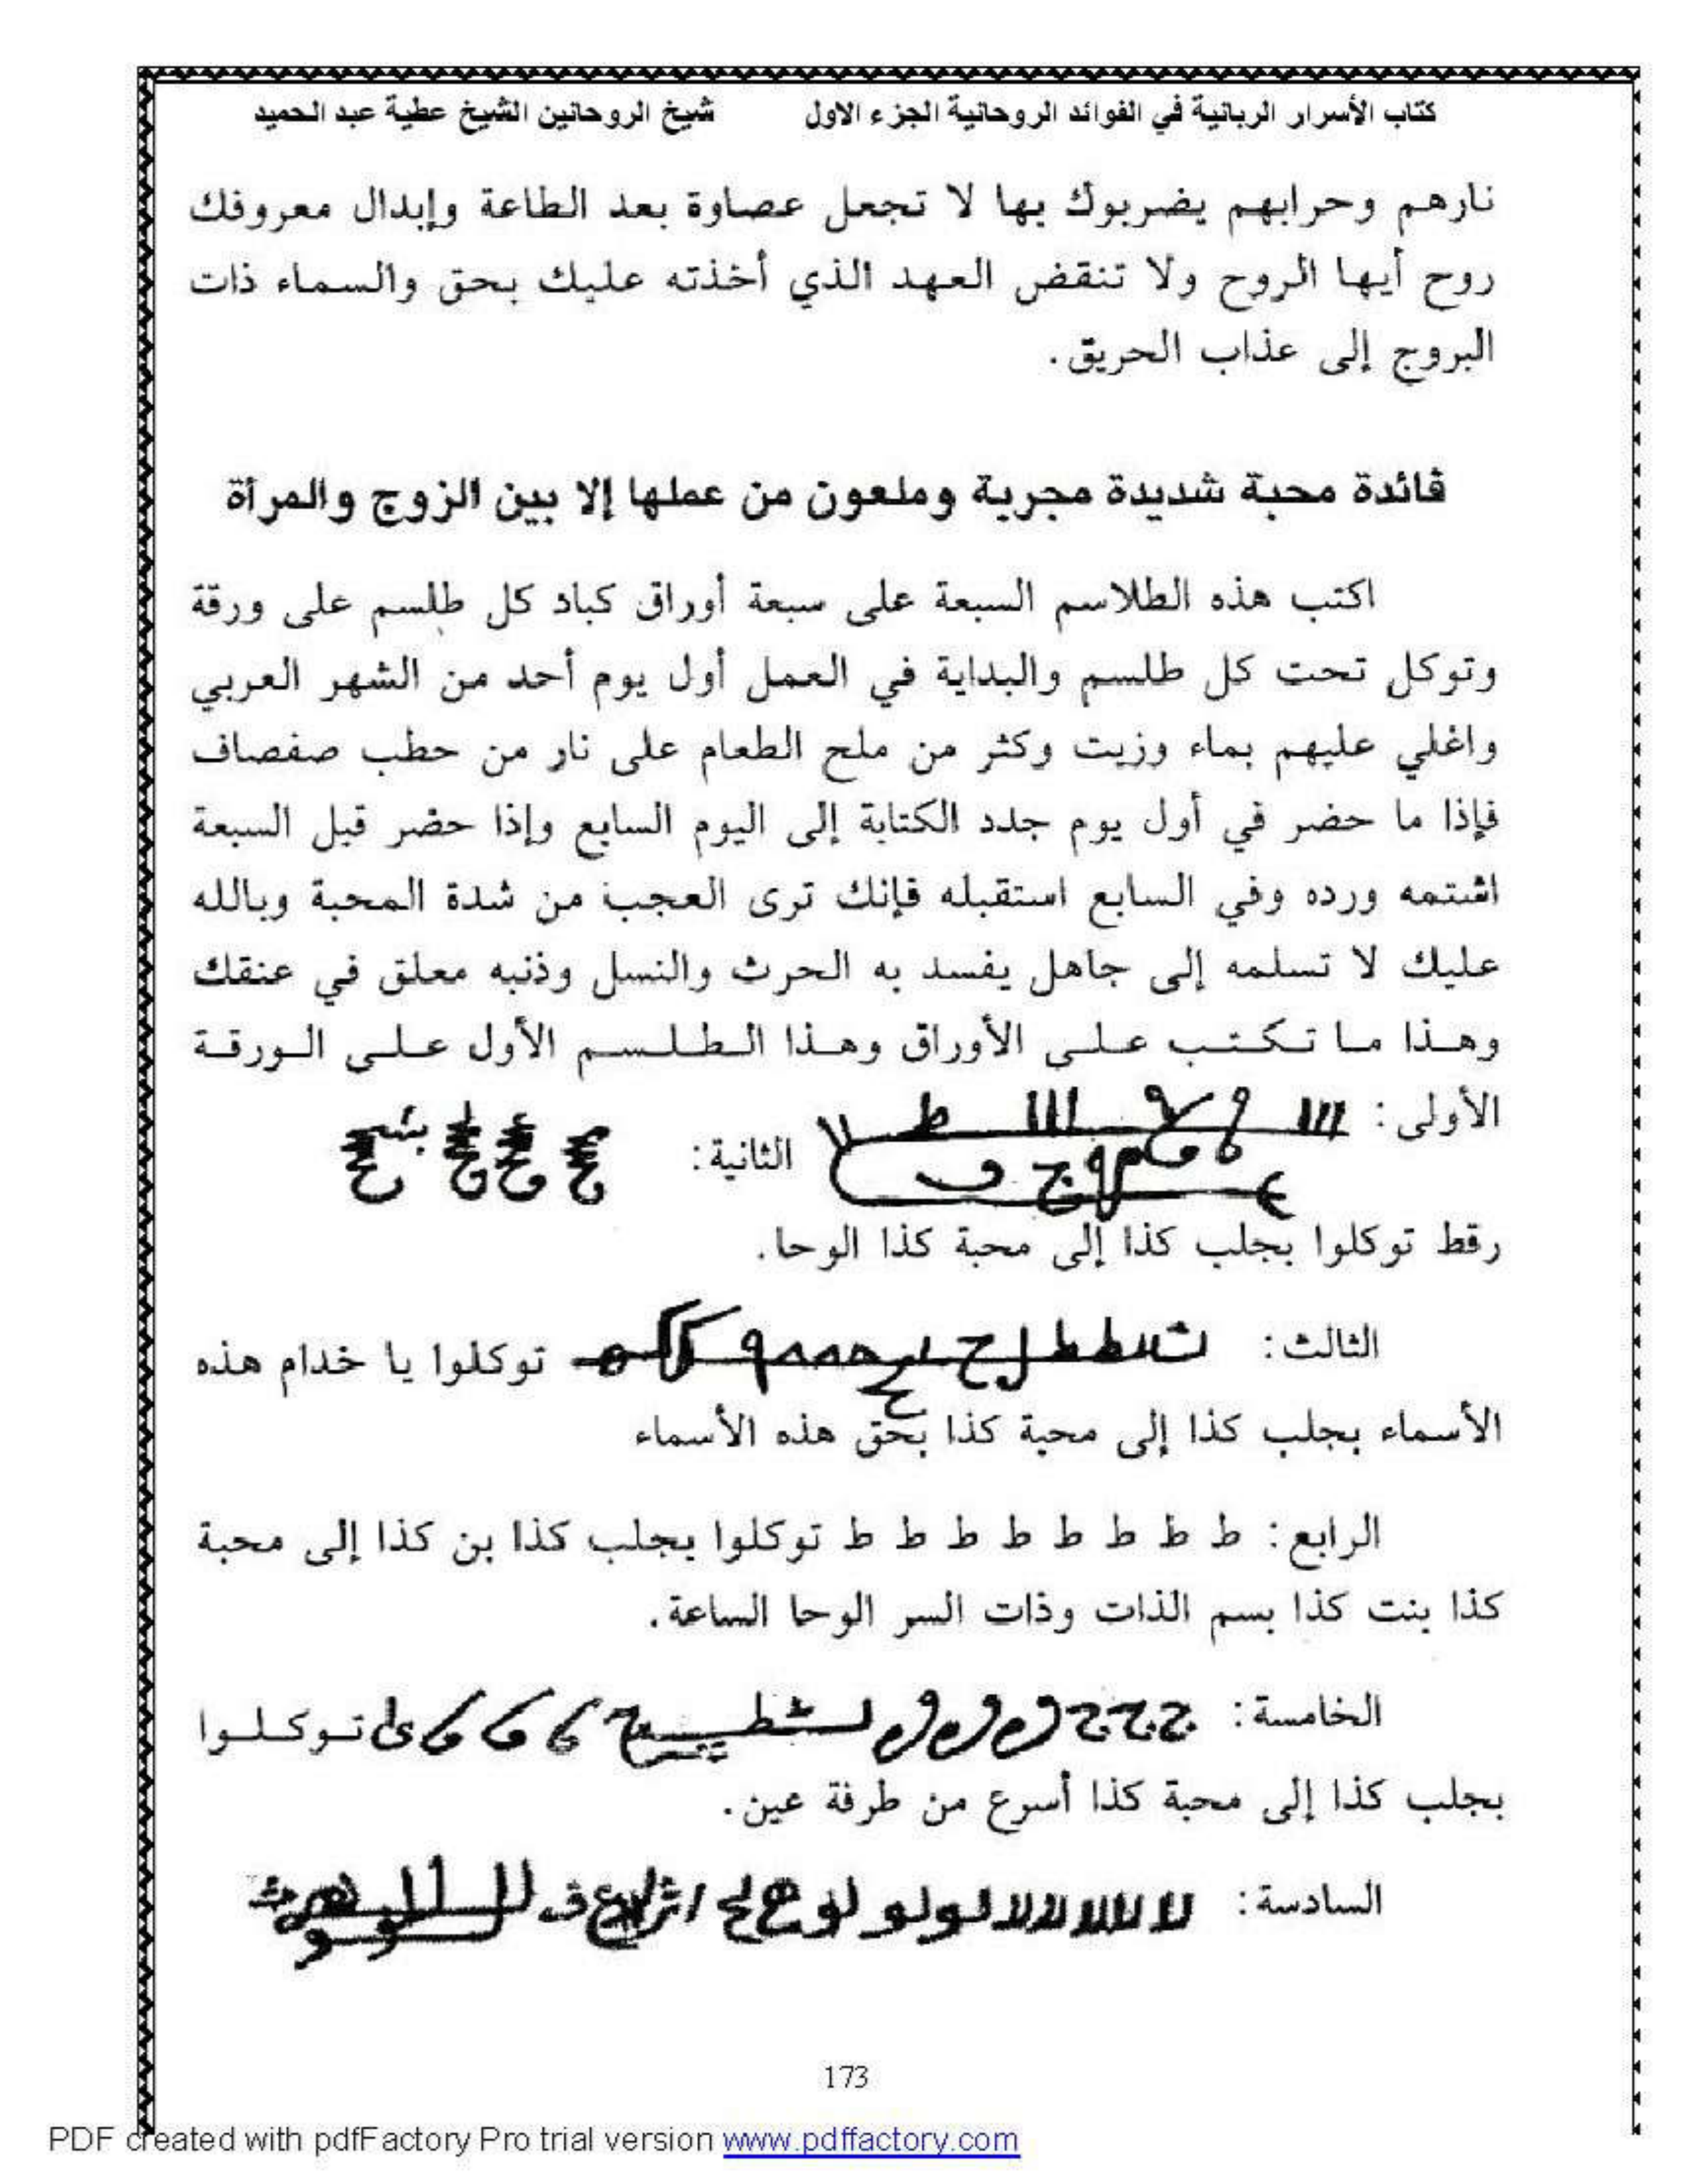 كتاب الأسرار الربانية في الفوائد الروحانية الجزء الاول شيخ الروحانين الشيخ عطية عبد الحميد
نارهم وحرابهم يضربوك بها لا تجعل عصاوة بعد الطاعة وإبدال معروفك
روح أيها الروح ولا تنقض العهد الذي أخذته عليك بحق والسماء ذات
البروج إلى عذاب الحريق.
فائدة محبة شديدة مجربة وملعون من عملها إلا بين الزوج والمرأة
اكتب هذه الطلاسم السبعة على سبعة أوراق كباد كل طلسم على ورقة
وتوكل تحت كل طلسم والبداية في العمل أول يوم أحد من الشهر العربي
واغلي عليهم بماء وزيت وكثر من ملح الطعام على نار من حطب صفصاف
فإذا ما حضر في أول يوم جدد الكتابة إلى اليوم السابع وإذا حضر قبل السبعة
اشتمه ورده وفي السابع استقبله فإنك ترى العجب من شدة المحبة وبالله
عليك لا تسلمه إلى جاهل يفسد به الحرث والنسل وذنبه معلق في عنقك
وهذا ما تكتب على الأوراق وهذا الطلسم الأول على الورقة
الأولى: الثانية:
رقط توكلوا بجلب كذا إلى محبة كذا الوحا.
الثالث: توكلوا يا خدام هذه
الأسماء بجلب كذا إلى محبة كذا بحق هذه الأسماء
الرابع: ط ط ط ط ط ط ط ط توكلوا بجلب كذا بن كذا إلى محبة
كذا بنت كذا بسم الذات وذات السر الوحا الساعة.
الخامسة: توكلوا
بجلب كذا إلى محبة كذا أسرع من طرفة عين.
السادسة:
173
PDF created with pdfFactory Pro trial version www.pdffactory.com